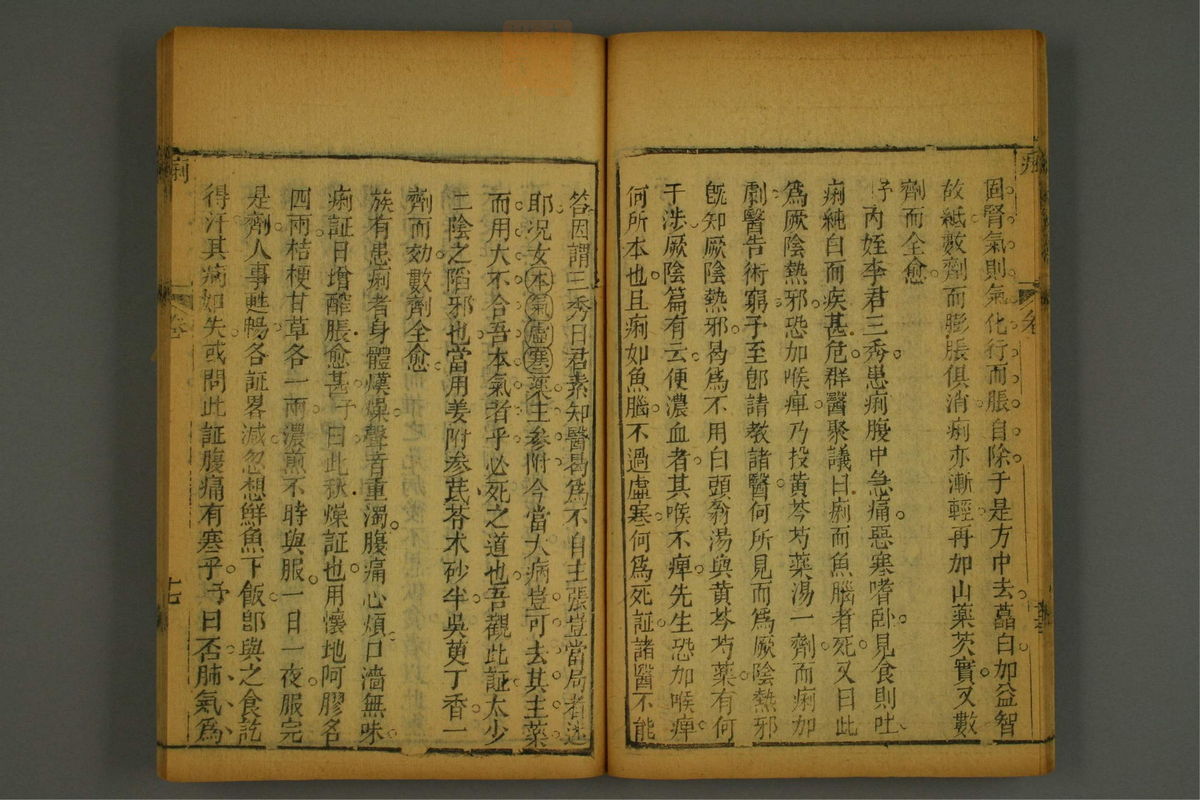 固腎氣則氣化行而脹自除于是方中去藠白加益智
故紙數劑而膨脹俱消痢亦漸輕再加山藥芡實又數
劑而全愈
予內姪李君三秀患痢腹中急痛惡寒嗜卧見食則吐
痢純白而疾甚危群醫聚議曰痢而魚腦者死又曰此
爲厥陰熱邪恐加喉痺乃投黃芩芍藥湯一劑而痢加
劇醫告術窮予至卽請教諸醫何所見而爲厥陰熱邪
旣知厥陰熱邪曷爲不用白頭翁湯與黃芩芍藥有何
干涉厥陰篇有云便濃血者其喉不痺先生恐加喉痺
何所本也且痢如魚腦不過虛寒何爲死証諸醫不能
答因謂三秀曰君素知醫曷爲不自主張豈當局者迷
耶況女本氣虛寒藥主參附今當大病豈可去其主藥
而用大不合吾本氣者乎必死之道也吾觀此証太少
二陰之陷邪也當用姜附參芪苓术砂半吳萸丁香一
劑而効數劑全愈
族有患痢者身體熯燥聲音重濁腹痛心煩口濇無味
痢証日增醡脹愈甚予曰此秋燥証也用懷地阿膠各
四兩桔梗甘草各一兩濃煎不時與服一日一夜服完
是劑人事甦暢各証畧減忽想鮮魚下飯卽與之食訖
得汗其痢如失或問此証腹痛有寒乎予曰否肺氣爲
痢
卷
十七